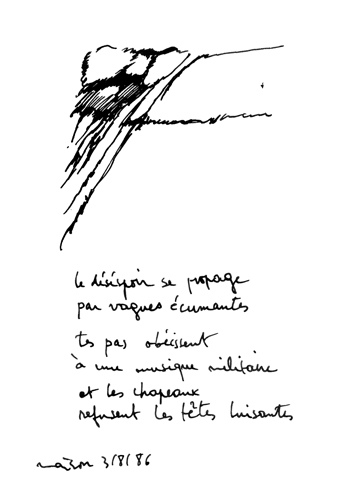 le désespoir se propage
par vagues écumantes
tes pas obéissent
à une musique militaire
et les chapeaux
refusent les têtes luisantes
3/8/86